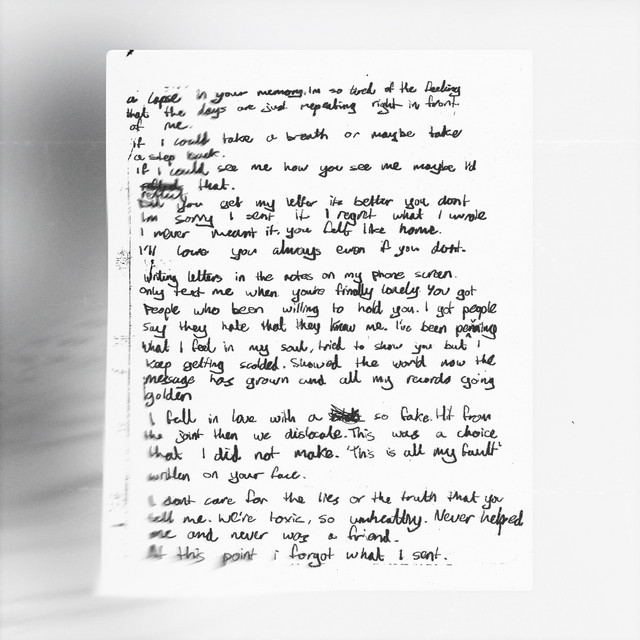 a lapse in your memory. Im so tired of the feeling
that the days are just repeating right in front
of me.
if I could take a breath or maybe take
a step back.
If I could see me how you see me maybe I'd
reflect that.
Did you get my letter its better you dont
Im sorry I sent it I regret what I wrote
I never meant it. you felt like home.
I'll love you always even if you dont.
Writing letters in the notes on my phone screen.
only text me when you're finally lonely You got
people who been willing to hold you. I got people
say they hate that they know me. I've been penning
what I feel in my soul, tried to show you but I
keep getting scolded. Showed the world now the
message has grown and all my records going
golden
I fell in love with a so fake. Hit from
the joint then we dislocate. This was a choice
that I did not make. 'This is all my fault'
written on your face.
I dont care for the lies or the truth that you
tell me. We're toxic, so unhealthy. Never helped
me and never was a friend.
At this point i forgot what I sent.